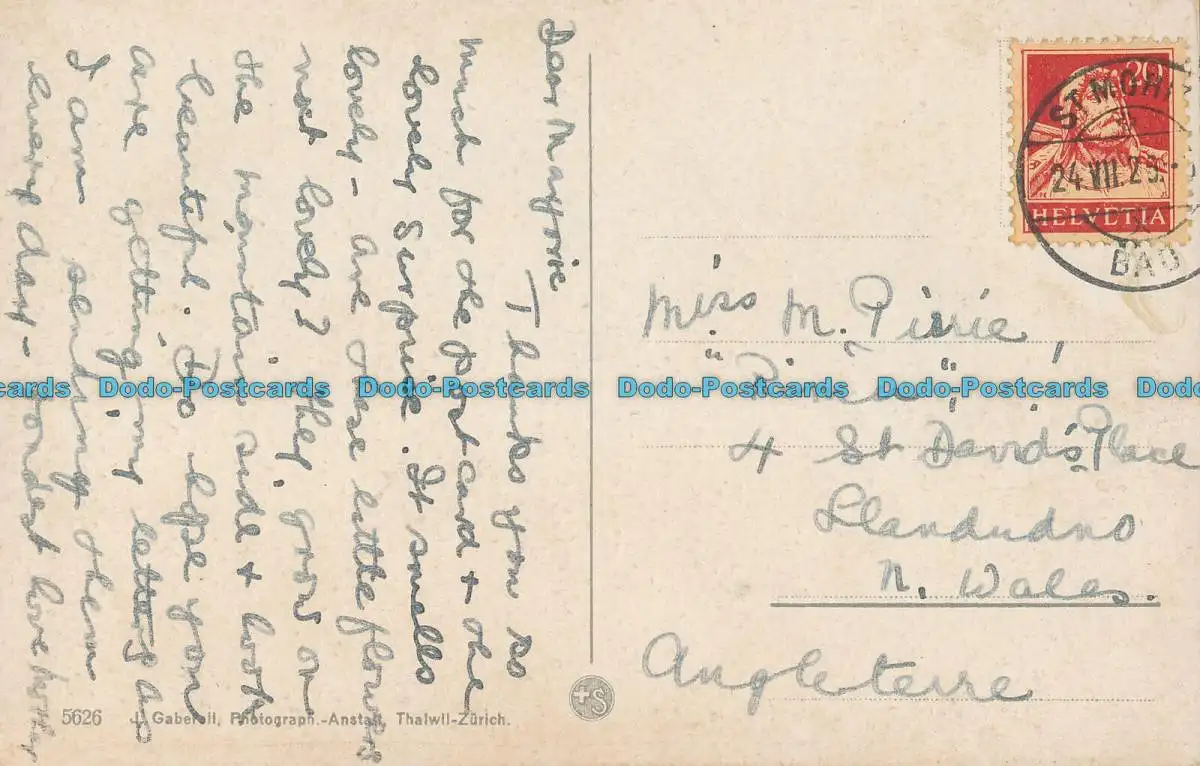 Dear Marjorie
Thanks you so
much for the postcard + the
lovely surprise. It smells
lovely - are these little flowers
not lovely? They grow on
the mountain side + look
beautiful. Do hope you
are getting my letters as
I am sending them
every day - Fondest love
20
HELVETIA
ST. MORITZ
24.VII.29.
BAD
Miss M. Pirrie,
4 St David's Place
Llandudno
N. Wales.
Angleterre
Dodo-Postcards Dodo-Postcards Dodo-Postcards Dodo-Postcards Dodo-Postcards
5626 J. Gaberell, Photograph.-Anstalt, Thalwil-Zürich.
+S